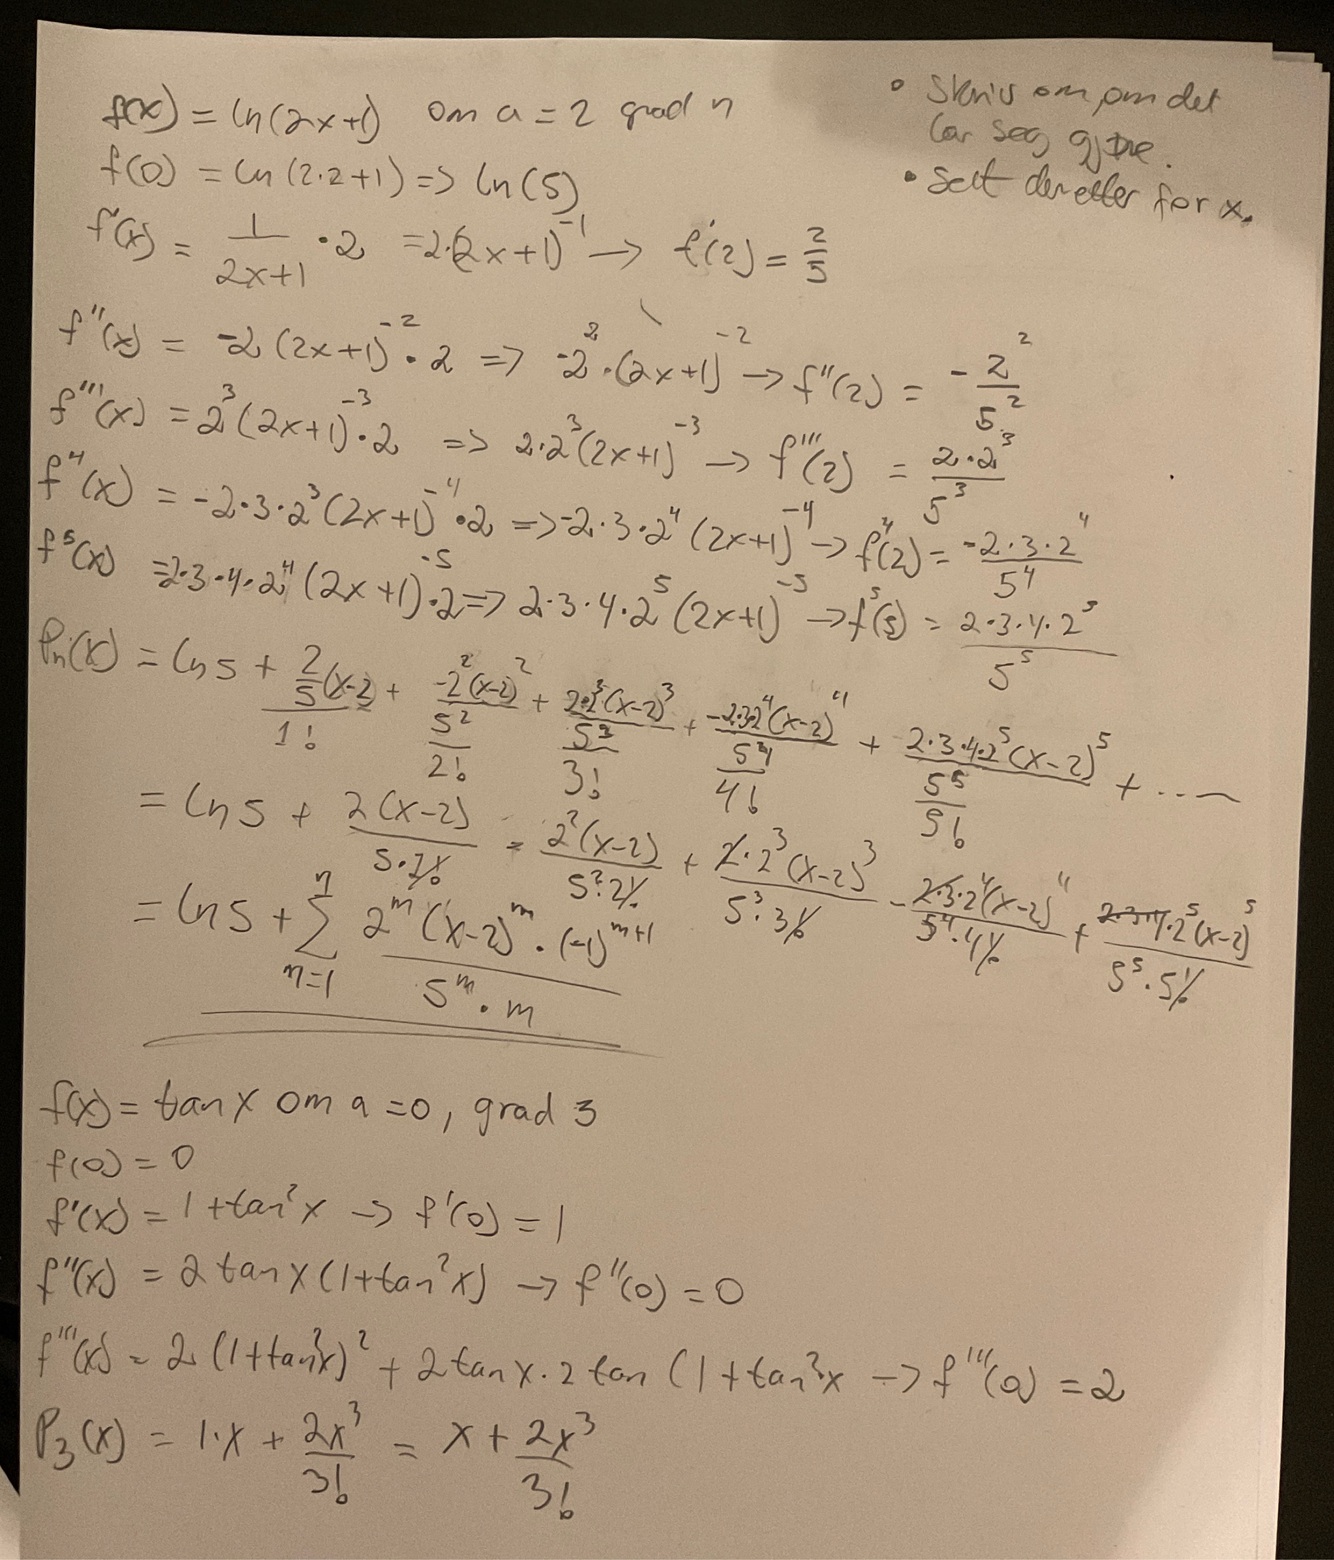 f(x) = ln(2x+1) om a = 2 grad n
• Skriv om om det
lar seg gjøre.
• sett deretter for x.
f(0) = ln(2·2+1) => ln(5)
f'(x) = 1/(2x+1) · 2 = 2·(2x+1)^-1 → f'(2) = 2/5
f''(x) = -2(2x+1)^-2 · 2 => -2^2·(2x+1)^-2 → f''(2) = -2^2/5^2
f'''(x) = 2^3(2x+1)^-3 · 2 => 2·2^3(2x+1)^-3 → f'''(2) = 2·2^3/5^3
f^4(x) = -2·3·2^3(2x+1)^-4 · 2 => -2·3·2^4(2x+1)^-4 → f^4(2) = -2·3·2^4/5^4
f^5(x) = 2·3·4·2^4(2x+1)^-5 · 2 => 2·3·4·2^5(2x+1)^-5 → f^5(5) = 2·3·4·2^5/5^5
Pn(x) = ln 5 + (2/5(x-2))/1! + (-2^2(x-2)^2/5^2)/2! + (2·2^3(x-2)^3/5^3)/3! + (-2·3·2^4(x-2)^4/5^4)/4! + (2·3·4·2^5(x-2)^5/5^5)/5! + ....
= ln 5 + 2(x-2)/(5·1!) - 2^2(x-2)/(5^2·2!) + 2·2^3(x-2)^3/(5^3·3!) - 2·3·2^4(x-2)^4/(5^4·4!) + 2·3·4·2^5(x-2)^5/(5^5·5!)
= ln 5 + Σ_{n=1}^{n} 2^m(x-2)^m·(-1)^{m+1}/(5^m·m)
f(x) = tan x om a = 0, grad 3
f(0) = 0
f'(x) = 1+tan^2 x → f'(0) = 1
f''(x) = 2 tan x(1+tan^2 x) → f''(0) = 0
f'''(x) = 2(1+tan^2 x)^2 + 2 tan x · 2 tan (1+tan^2 x → f'''(0) = 2
P3(x) = 1·x + 2x^3/3! = x + 2x^3/3!